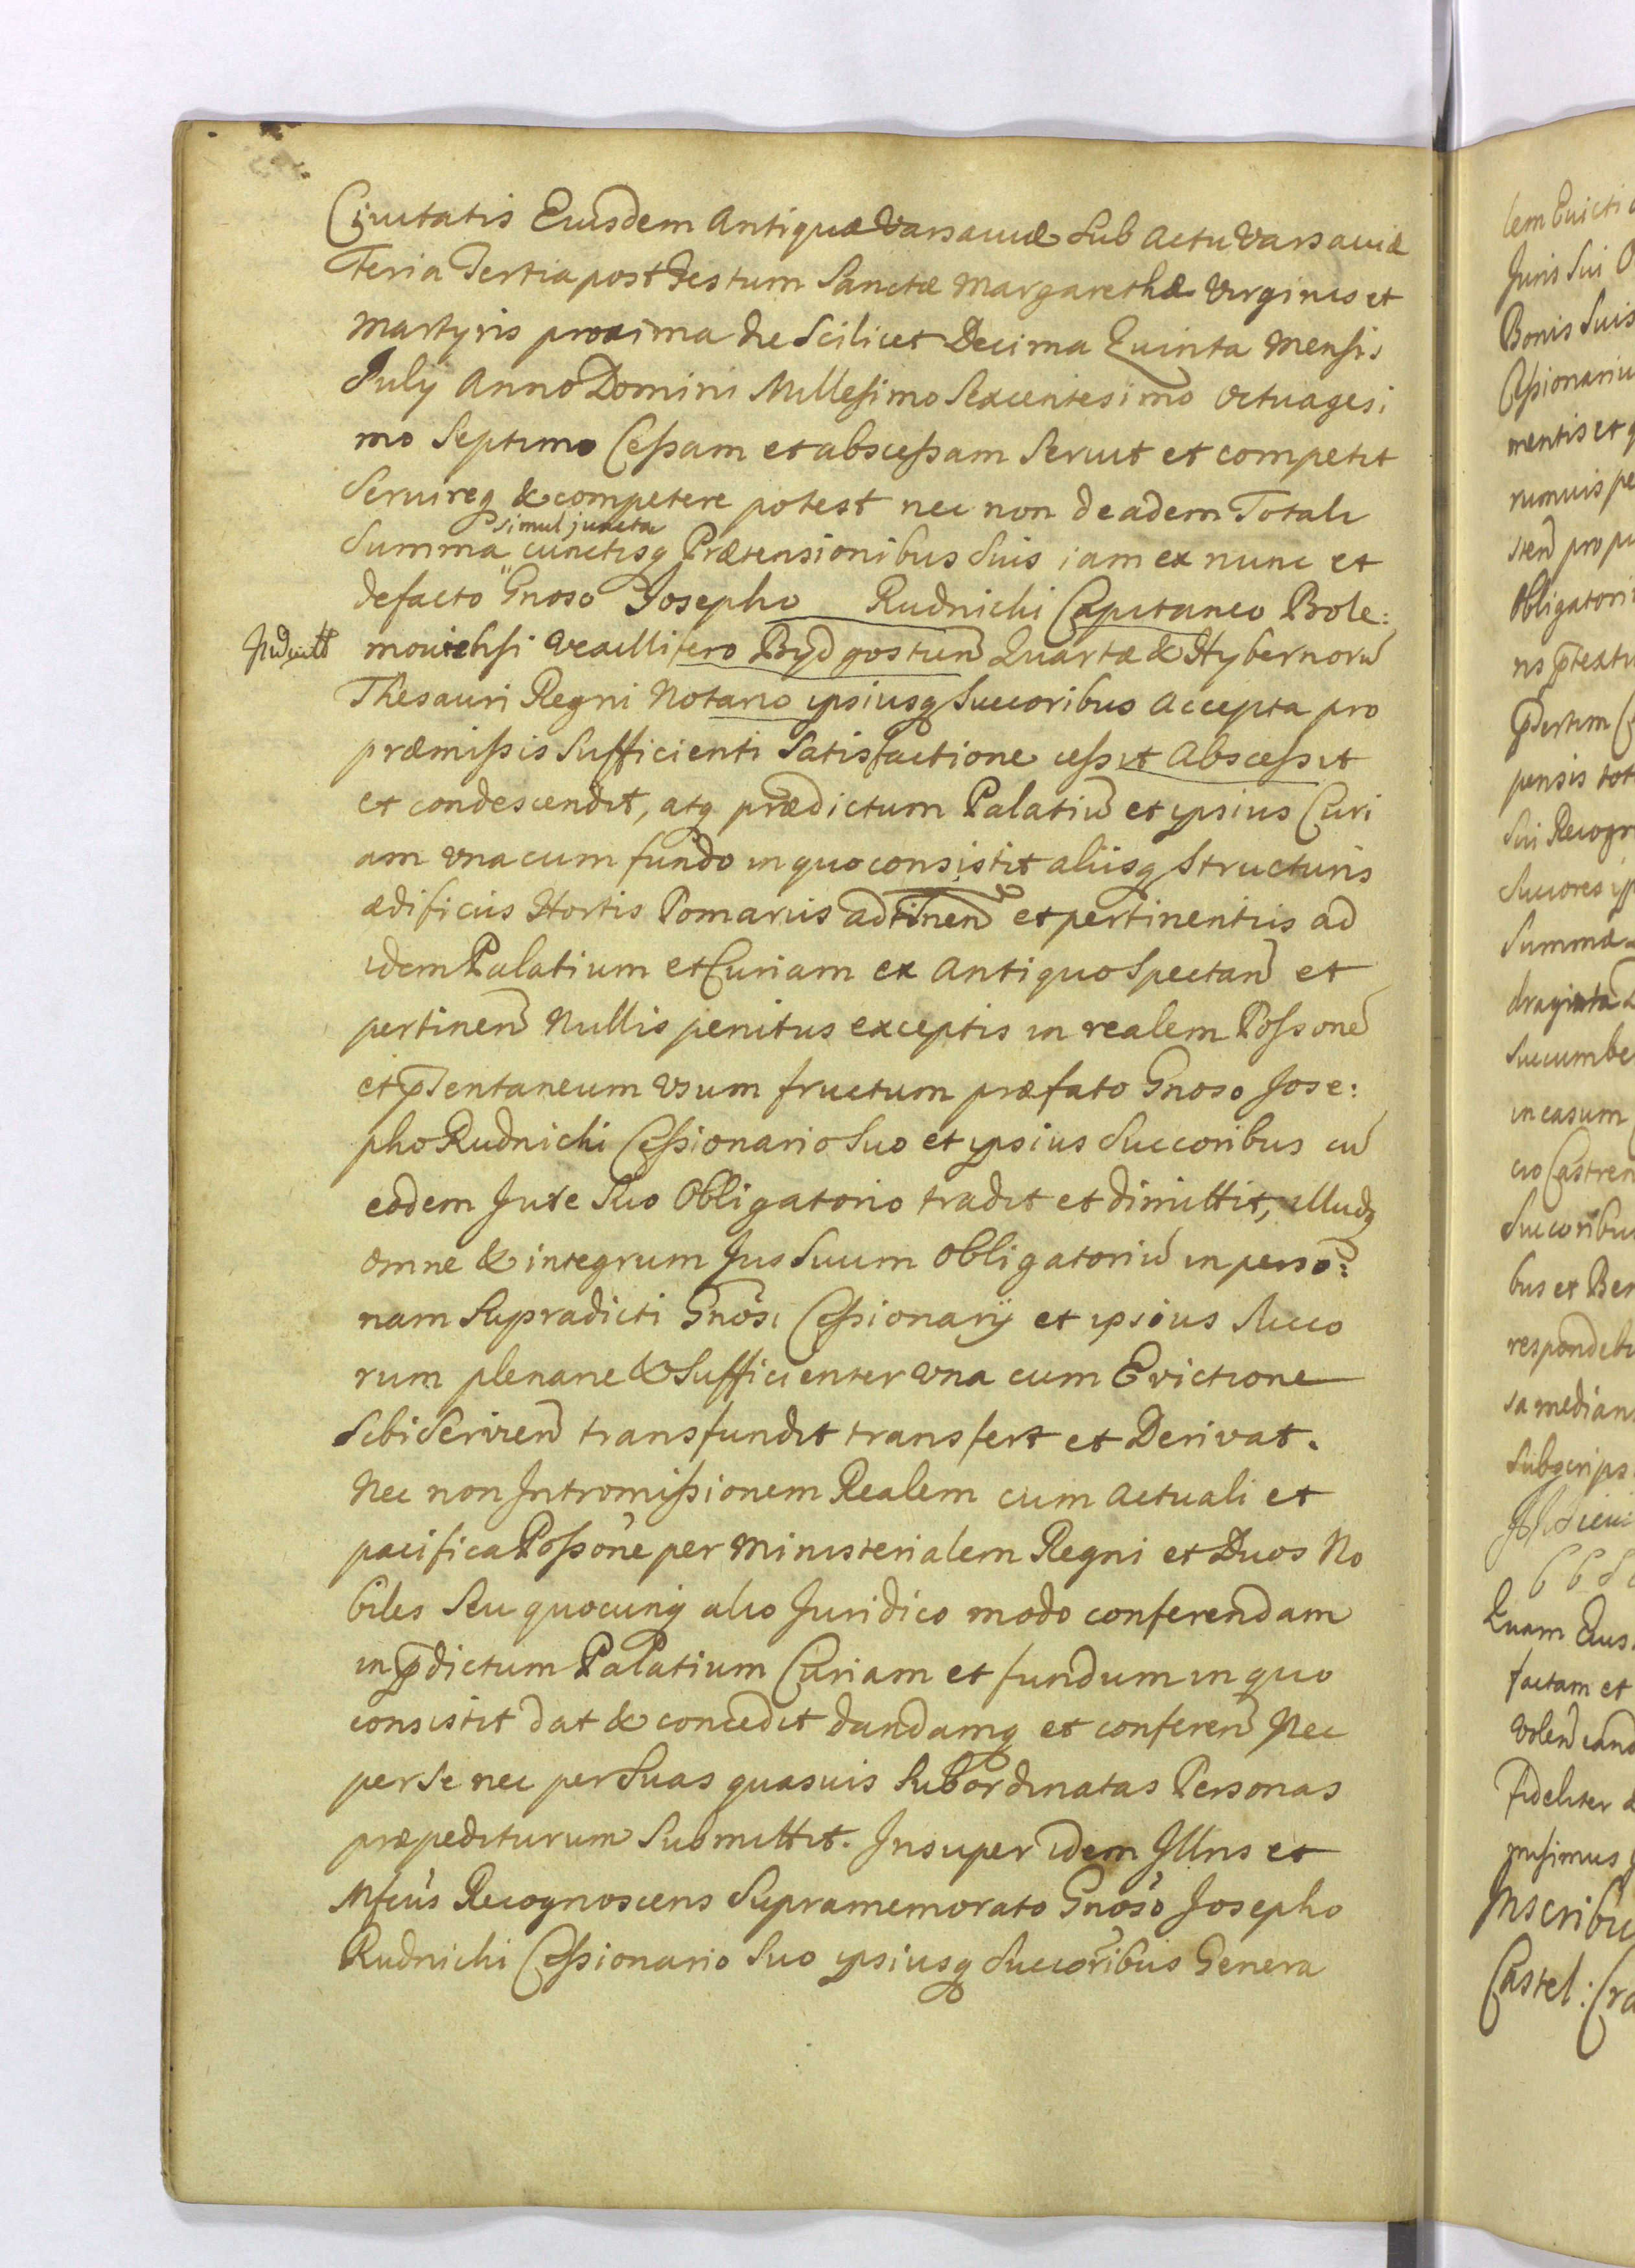 Ciuitatis Eiusdem Antiquæ Varsauiæ Sub Actu Varsauiæ
Feria Tertia post Festum Sanctæ Margarethæ Virginis et
Martyris proxima die Scilicet Decima Quinta Mensis
July Anno Domini Millesimo Sexcentesimo Octuagesi
mo Septimo Cessam et abscessam Seruit et competit
Seruireq & competere potest nec non de eadem Totali
simul juncta
Summa cunctisq Prætensionibus Suis iam ex nunc et
defacto Gnoso Josepho Rudnicki Capitaneo Bole:
mouiensi Vexillifero Bydgostien Quartæ & Hybernorū
Thesauri Regni Notario ipsiusq Succoribus Accepta pro
præmissis Sufficienti Satisfactione cessit Abscessit
et condescendit, atq prædictum Palatiū et ipsius Curi
am vna cum fundo in quo consistit aliisq Structuris
ædificiis Hortis Pomariis adtinen et pertinentiis ad
idem Palatium et Curiam ex Antiquo Spectan et
pertinen Nullis penitus exceptis in realem Possonē
et pntaneum Vsum fructum præfato Gnoso Jose:
pho Rudnicki Cessionario Suo et ipsius Succoribus cū
eodem Jure Suo Obligatorio tradit et dimittit, illudq
omne & integrum Jus Suum Obligatoriū in perso:
nam Supradicti Gnosi Cessionarÿ et ipsius Succo
rum plenarie & Sufficienter vna cum Evictione
Sibi Servien transfundit transfert et Derivat.
Nec non Intromissionem Realem cum Actuali et
pacifica Possone per Ministerialem Regni et Duos No
biles Seu quocunq alio Juridico modo conferendam
in pdictum Palatium Curiam et fundum in quo
consistit dat & concedit dandamq et conferen Nec
per Se nec per Suas quasuis Subordinatas Personas
præpediturum Submittit. Insuper idem Jllris et
Mfcus Recognoscens Supramemorato Gnoso Josepho
Rudnicki Cessionario Suo ipsiusq Succoribus Genera
lem Euicti
Juris Sui
Bonis Suis
Cessionariu
mentis et
rumuis pe
Obligatorii
pensis tot
Sui Recogn
Succores
Summæ
Succumbe
in casum
cio Castren
Succoribu
bus et Ber
respondeb
sa median
Quam Eius
factam et
fideliter
Inscribu
Castel: Cra